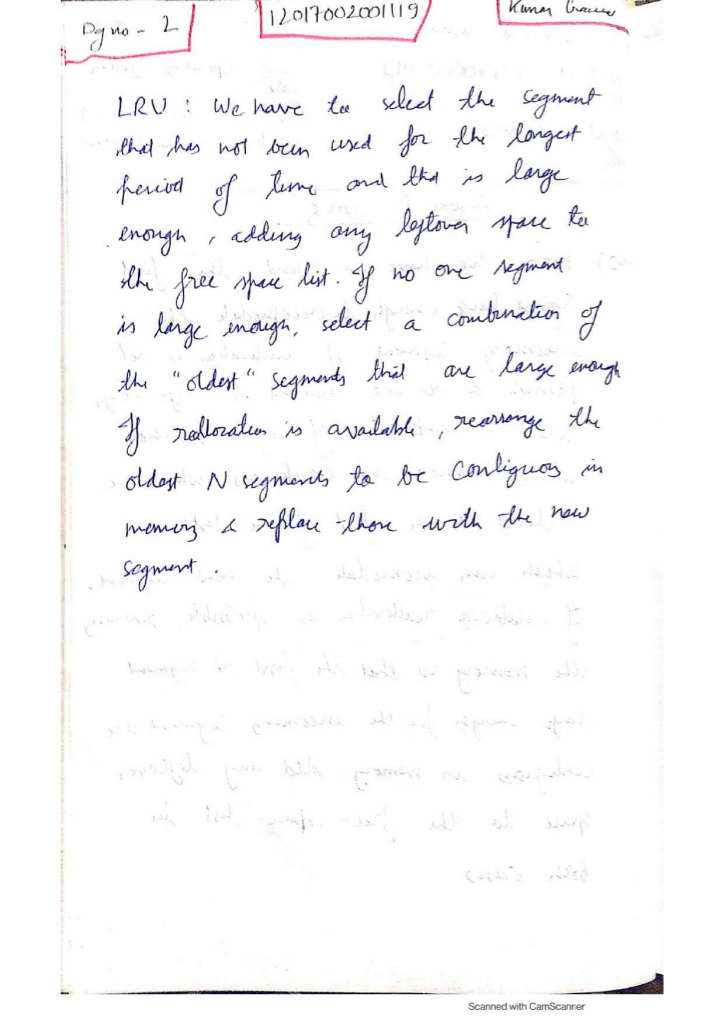 Pg no - 2
12017002001119
Kumar
LRU : We have to select the segment
that has not been used for the longest
period of time and that is large
enough, adding any leftover space to
the free space list. If no one segment
is large enough, select a combination of
the "oldest" segments that are large enough
If reallocation is available, rearrange the
oldest N segments to be Contiguous in
memory & replace those with the new
Segment.
Scanned with CamScanner